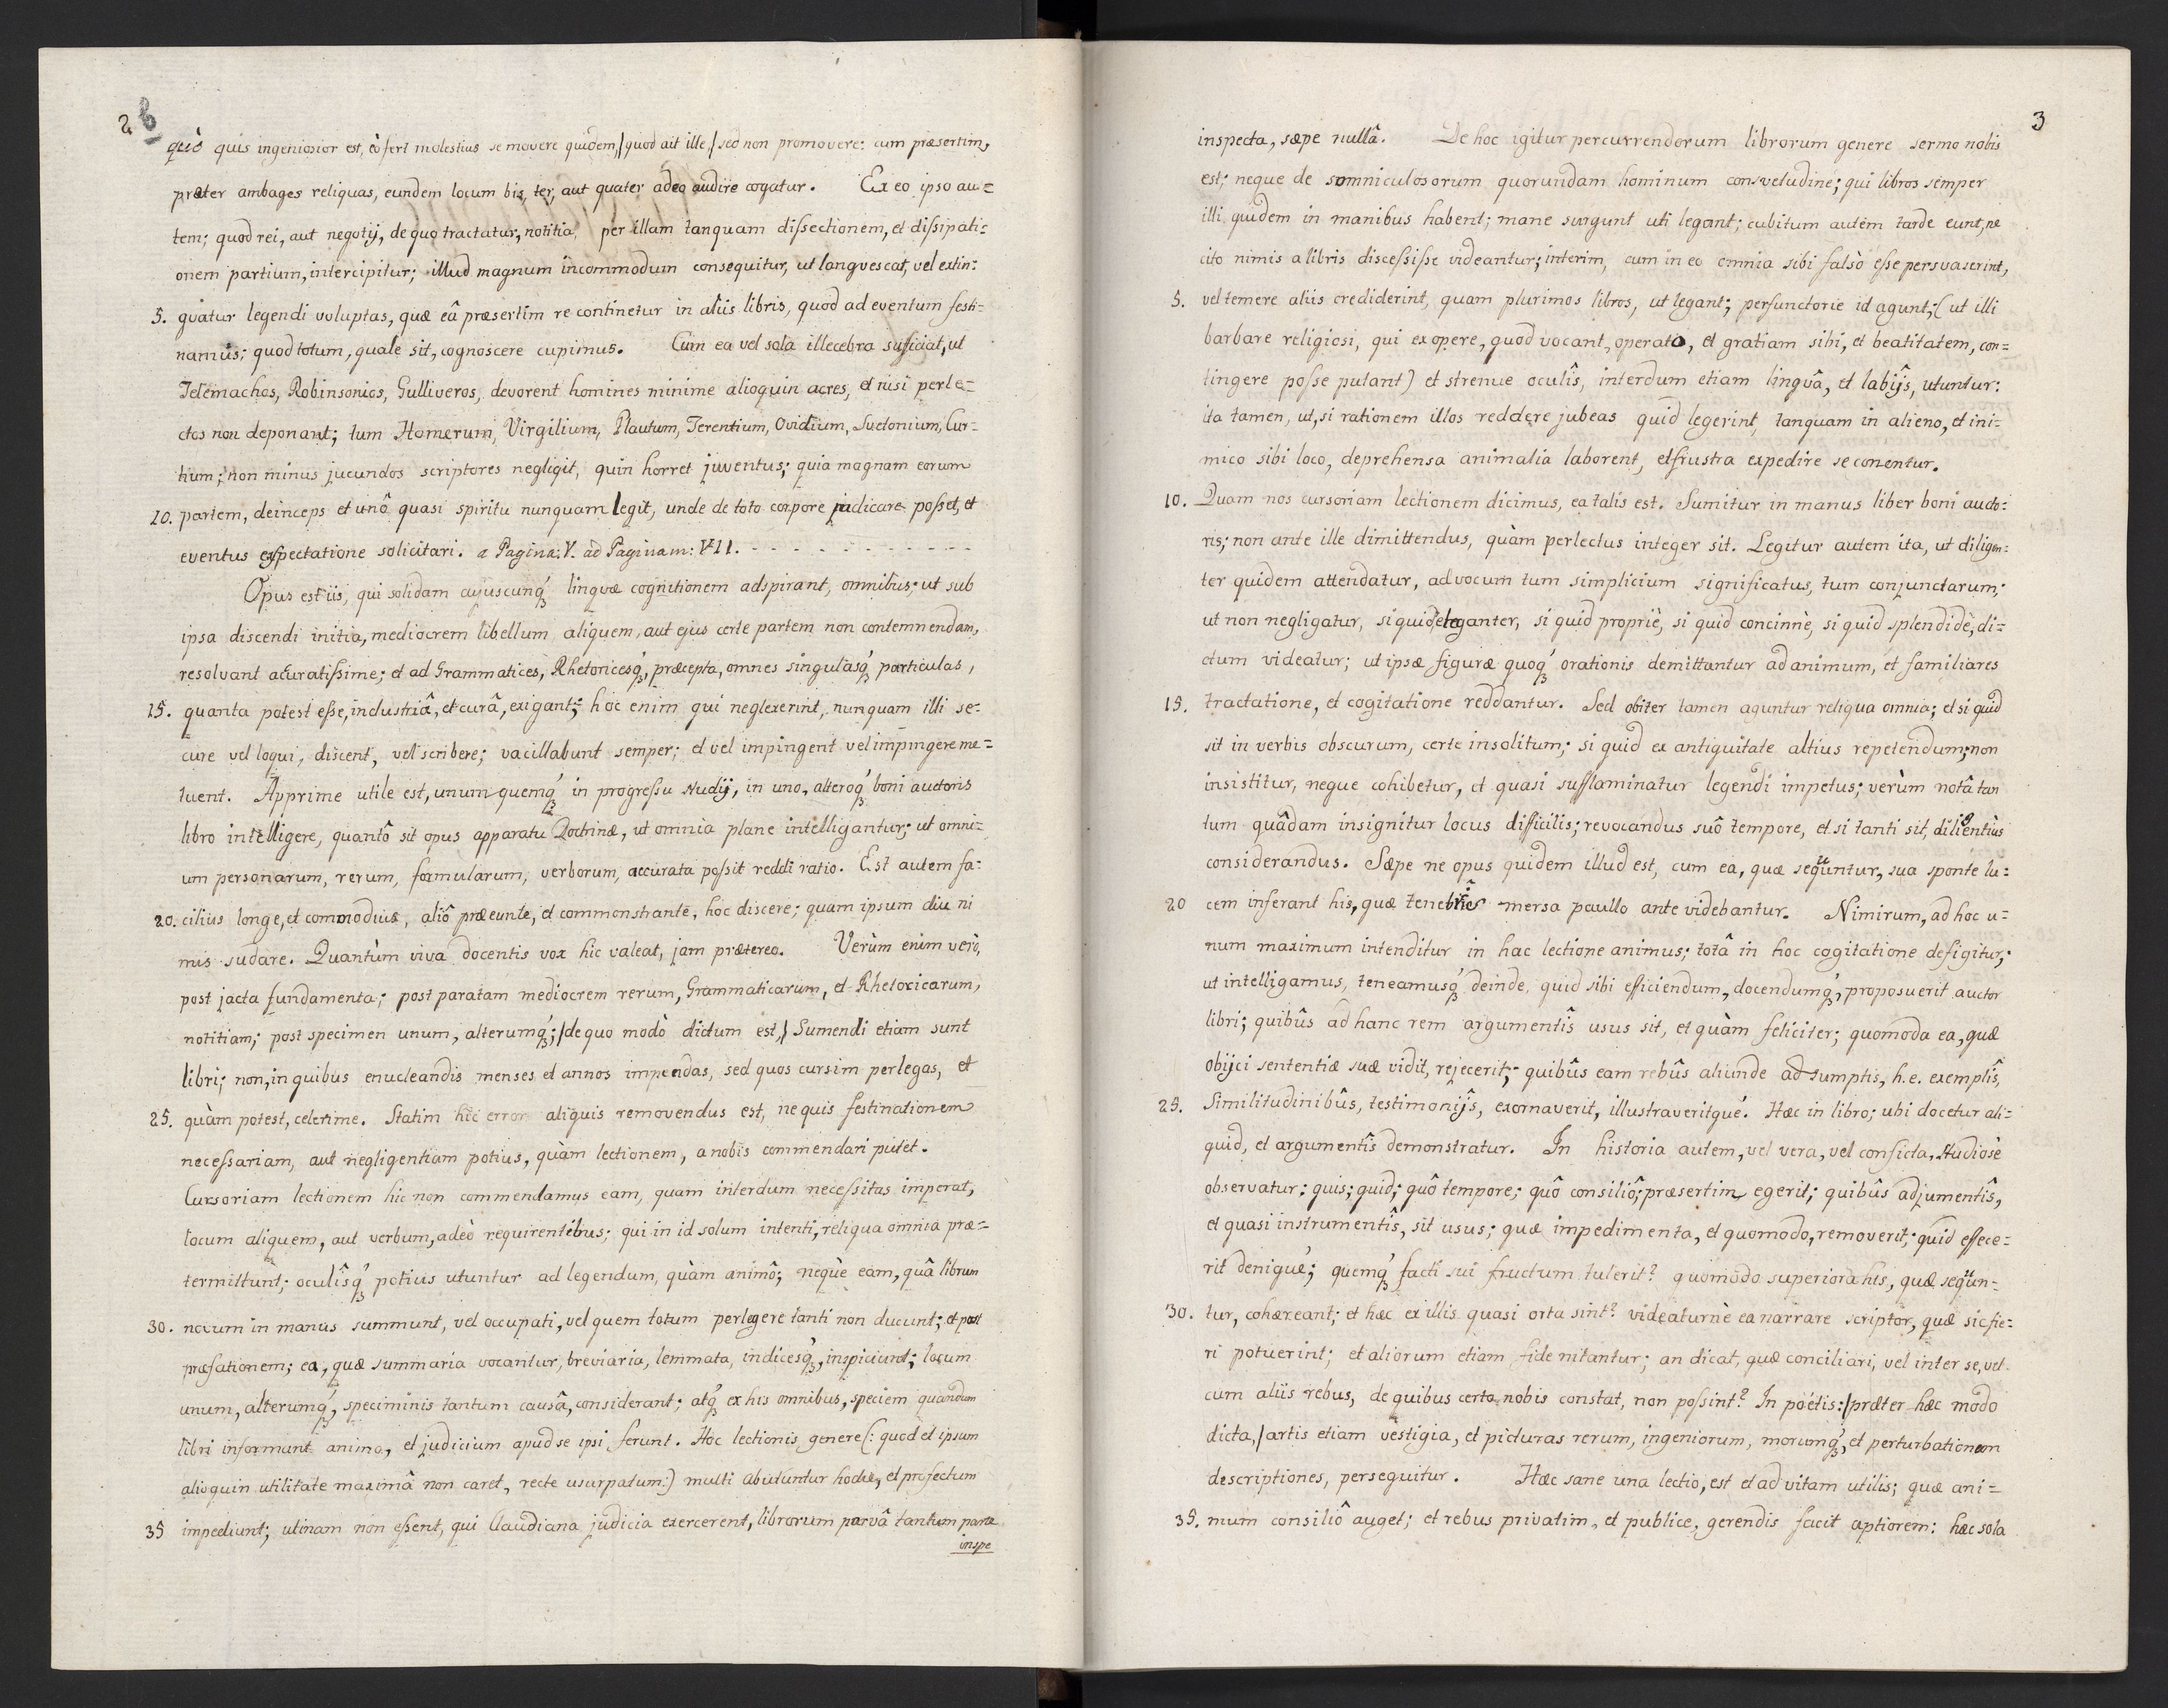 2 b
quò quis ingeniosior est, eò fert molestius se movere quidem, /quod ait ille,/ sed non promovere: cum præsertim,
præter ambages reliquas, eundem locum bis, ter, aut quater adeo audire cogatur. Ex eo ipso au=
tem; quod rei, aut negotij, de quo tractatur, notitia, per illam tanquam dissectionem, et dissipati=
onem partium, intercipitur; illud magnum incommodum consequitur, ut langvescat, vel extin=
5. gvatur legendi voluptas, quæ eâ præsertim re continetur in aliis libris, quod ad eventum festi=
namus; quod totum, quale sit, cognoscere cupimus. Cum ea vel sola illecebra sufficiat, ut
Telemachos, Robinsonios, Gulliveros, devorent homines minime alioquin acres, et nisi perle=
ctos non deponant; tum Homerum, Virgilium, Plautum, Terentium, Ovidium, Suetonium, Cur=
tium; non minus jucundos scriptores negligit, quin horret juventus; quia magnam eorum
10. partem, deinceps et unô quasi spiritu nunquam legit, unde de toto corpore judicare posset, et
eventus exspectatione solicitari. a Pagina: V. ad Paginam: VII. - - - - - - - - - - - -
Opus est iis, qui solidam cujuscunq́ʒ lingvæ cognitionem adspirant, omnibus; ut sub
ipsa discendi initia, mediocrem libellum aliquem, aut ejus certe partem non contemnendam,
resolvant accuratissime; et ad Grammatices, Rhetoricesq́ʒ, præcepta, omnes singulasq́ʒ particulas,
15. quanta potest esse, industriâ, et curâ, exigant; hoc enim qui neglexerint, nunquam illi se=
cure vel loqui, discent, vel scribere; vacillabunt semper; et vel impingent vel impingere me=
tuent. Apprime utile est, unumquemq́ʒ in progressu studij, in uno, alteroq́ʒ boni auctoris
libro intelligere, quantô sit opus apparatu Doctrinæ, ut omnia plane intelligantur; ut omni=
um personarum, rerum, formularum, verborum, accurata possit reddi ratio. Est autem fa=
20. cilius longe, et commodius, aliô præeunte, et commonstrante, hoc discere; quam ipsum diu ni
mis sudare. Quantùm viva docentis vox hic valeat, jam prætereo. Verùm enim verò,
post jacta fundamenta; post paratam mediocrem rerum, Grammaticarum, et Rhetoricarum,
notitiam; post specimen unum, alterumq́ʒ; /de quo modò dictum est,/ Sumendi etiam sunt
libri; non, in quibus enucleandis menses et annos impendas, sed quos cursim perlegas, et
25. quàm potest, celerime. Statim hic error aliquis removendus est, ne quis festinationem
necessariam, aut negligentiam potius, quàm lectionem, a nobis commendari putet.
Cursoriam lectionem hic non commendamus eam, quam interdum necessitas imperat,
locum aliquem, aut verbum, adeò requirentibus; qui in id solum intenti, reliqua omnia præ=
termittunt; oculîsq́ʒ potius utuntur ad legendum, quàm animô; neque eam, quâ librum
30. novum in manus summunt, vel occupati, vel quem totum perlegere tanti non ducunt; et post
præfationem; ea, quæ summaria vocantur, breviaria, lemmata, indicesq́ʒ, inspiciunt; locum
unum, alterumq́ʒ, speciminis tantum causâ, considerant; atq́ʒ ex his omnibus, speciem quandam
libri informant animo, et judicium apud se ipsi ferunt. Hoc lectionis genere (: quod et ipsum
alioquin utilitate maximâ non caret, recte usurpatum:) multi abutuntur hodie, et profectum
35 impediunt; utinam non essent, qui Claudiana judicia exercerent, librorum parvâ tantum parte
inspe
3
inspecta, sæpe nullâ. De hoc igitur percurrendorum librorum genere sermo nobis
est; neque de somniculosorum quorundam hominum consvetudine; qui libros semper
illi quidem in manibus habent; mane surgunt uti legant; cubitum autem tarde eunt, ne
cito nimis a libris discessisse videantur; interim, cum in eo omnia sibi falsò esse persvaserint,
5. vel temere aliis crediderint, quam plurimos libros, ut legant; perfunctorie id agunt; (ut illi
barbare religiosi, qui ex opere, quod vocant, operato, et gratiam sibi, et beatitatem, con=
tingere posse putant) et strenue oculîs, interdum etiam lingvâ, et labijs, utuntur:
ita tamen, ut, si rationem illos reddere jubeas quid legerint, tanquam in alieno, et ini=
mico sibi loco, deprehensa animalia laborent, et frustra expedire se conentur.
10. Quam nos cursoriam lectionem dicimus, ea talis est. Sumitur in manus liber boni aucto=
ris; non ante ille dimittendus, quàm perlectus integer sit. Legitur autem ita, ut diligen=
ter quidem attendatur, ad vocum tum simplicium significatus, tum conjunctarum;
ut non negligatur, si quid eleganter, si quid propriè, si quid concinnè, si quid splendidè, di=
ctum videatur; ut ipsæ figuræ quoq́ʒ orationis demittantur ad animum, et familiares
15. tractatione, et cogitatione reddantur. Sed obiter tamen aguntur reliqua omnia; et si quid
sit in verbis obscurum, certe insolitum; si quid ex antiquitate altius repetendum; non
insistitur, neque cohibetur, et quasi sufflaminatur legendi impetus; verùm notâ tan
tum quâdam insignitur locus difficilis; revocandus suô tempore, et si tanti sit, diligentiùs
considerandus. Sæpe ne opus quidem illud est, cum ea, quæ sequuntur, sua sponte lu=
20 cem inferant his, quæ tenebrîs mersa paullo ante videbantur. Nimirum, ad hoc u=
num maximum intenditur in hac lectione animus; totâ in hoc cogitatione defigitur;
ut intelligamus, teneamusq́ʒ deinde, quid sibi efficiendum, docendumq́ʒ, proposuerit auctor
libri; quibûs ad hanc rem argumentîs usus sit, et quàm feliciter; quomodo ea, quæ
obijci sententiæ suæ vidit, rejecerit; quibûs eam rebûs aliunde adsumptis, h.e. exemplîs,
25. Similitudinibûs, testimonijs, exornaverit, illustraveritque. Hæc in libro; ubi docetur ali=
quid, et argumentîs demonstratur. In historia autem, vel vera, vel conficta, studiosè
observatur: quis; quid; quô tempore; quô consiliô; præsertim egerit; quibûs adjumentîs,
et quasi instrumentîs, sit usus; quæ impedimenta, et quomodo, removerit; quid effece=
rit denique; quemq́ʒ facti sui fructum tulerit? quomodo superiora his, quæ sequun=
30. tur, cohæreant; et hæc ex illis quasi orta sint? videaturnè ea narrare scriptor, quæ sic fie=
ri potuerint; et aliorum etiam fide nitantur; an dicat, quæ conciliari, vel inter se, vel
cum aliis rebus, de quibus certo nobis constat, non possint? In poétis: /præter hæc modo
dicta,/ artis etiam vestigia, et picturas rerum, ingeniorum, morumq́ʒ, et perturbationem
descriptiones, persequitur. Hæc sane una lectio, est et ad vitam utilis; quæ ani=
35. mum consiliô auget; et rebus privatim, et publice, gerendis facit aptiorem: hæc sola